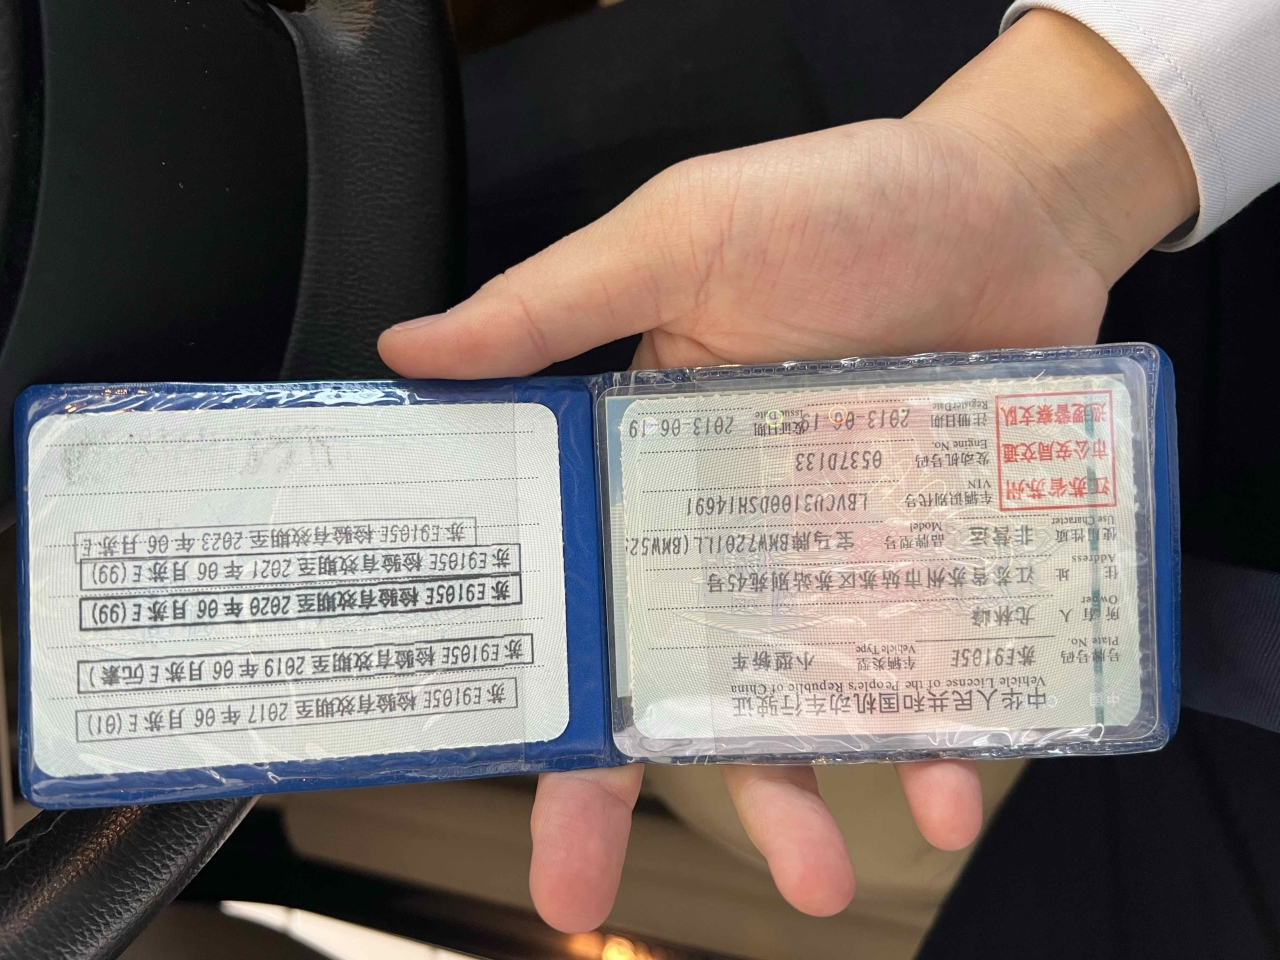 中华人民共和国机动车行驶证
Vehicle License of the People's Republic of China
号牌号码 苏E9105E 车辆类型 小型轿车
Plate No. Vehicle Type
所有人 尤林峰
Owner
住址 江苏省苏州市姑苏区苏站别苑45号
Address
使用性质 非营运 品牌型号 宝马牌BMW7201LL(BMW52
Use Character Model
江苏省苏州
市公安局交通
巡逻警察支队
车辆识别代号 LBVCU3100DSH14691
VIN
发动机号码 0537D133
Engine No.
注册日期 2013-06-19 发证日期 2013-06-19
Register Date Issue Date
苏E9105E 检验有效期至 2017 年 06 月苏 E(01)
苏E9105E 检验有效期至 2019 年 06 月苏 E(元素)
苏E9105E 检验有效期至 2020 年 06 月苏 E(99)
苏E9105E 检验有效期至 2021 年 06 月苏 E(99)
苏E9105E 检验有效期至 2023 年 06 月苏E